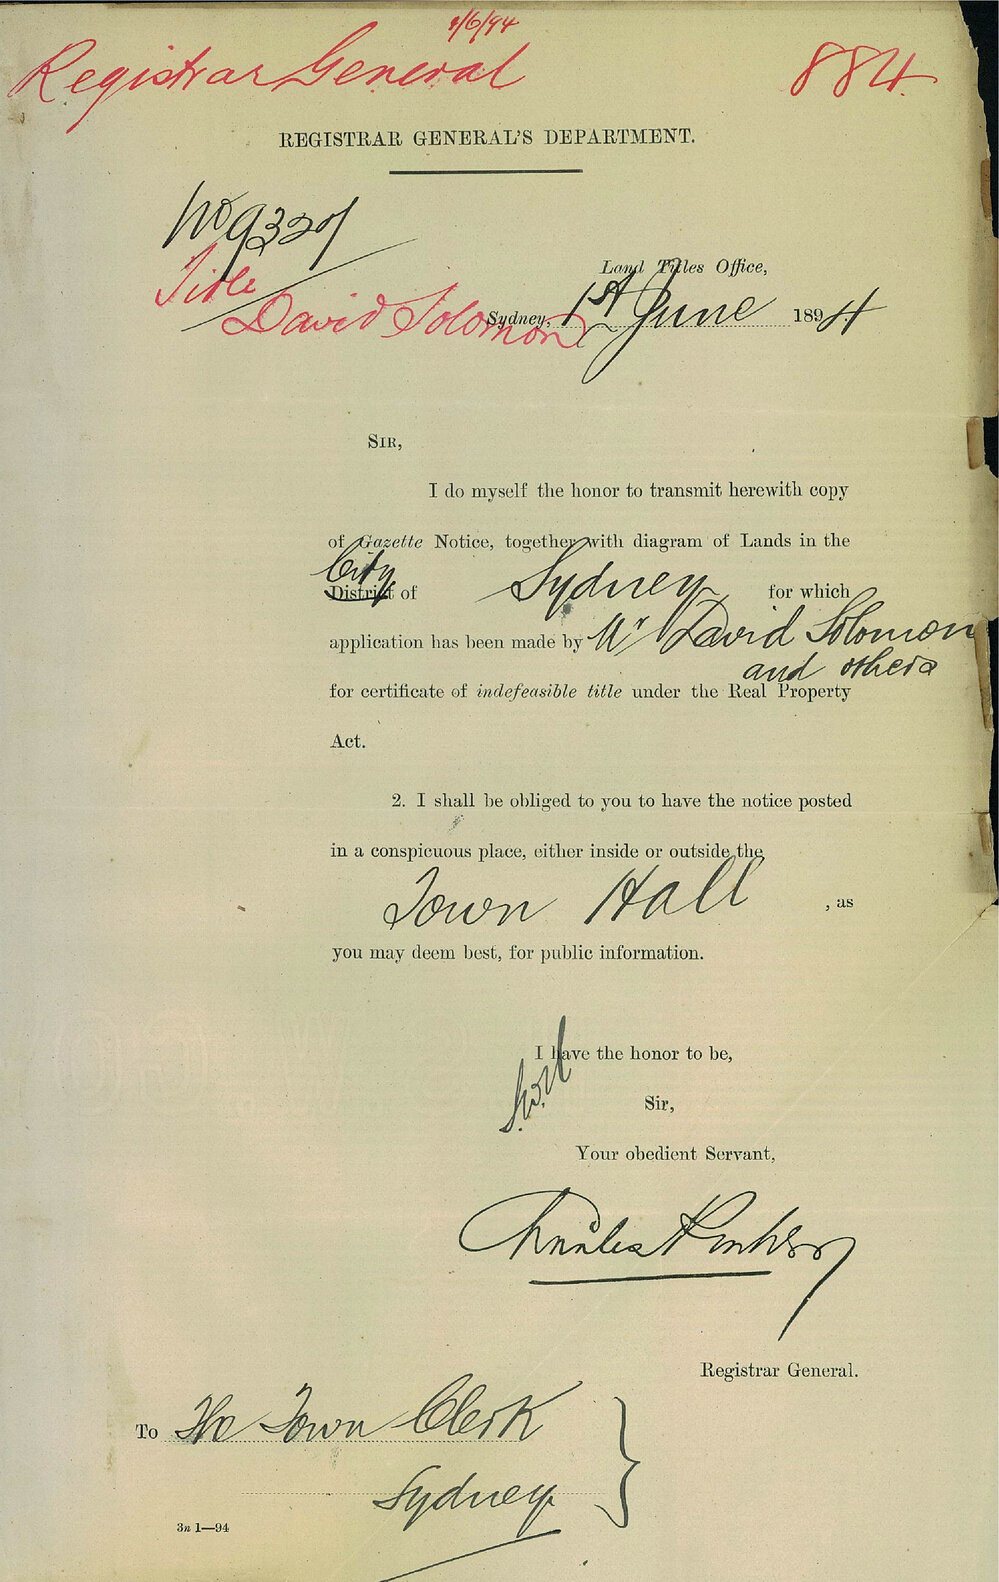 1/6/94
Registrar General 884.
REGISTRAR GENERAL'S DEPARTMENT.
No 9320
Title
David Solomon
Land Titles Office,
Sydney, 1st June 1894
SIR,
I do myself the honor to transmit herewith copy
of Gazette Notice, together with diagram of Lands in the
City
District of Sydney for which
application has been made by Mr David Solomon
and others
for certificate of indefeasible title under the Real Property
Act.
2. I shall be obliged to you to have the notice posted
in a conspicuous place, either inside or outside the
Town Hall , as
you may deem best, for public information.
I have the honor to be,
Sir,
Your obedient Servant,
Charles
Registrar General.
To The Town Clerk
Sydney
3n 1—94